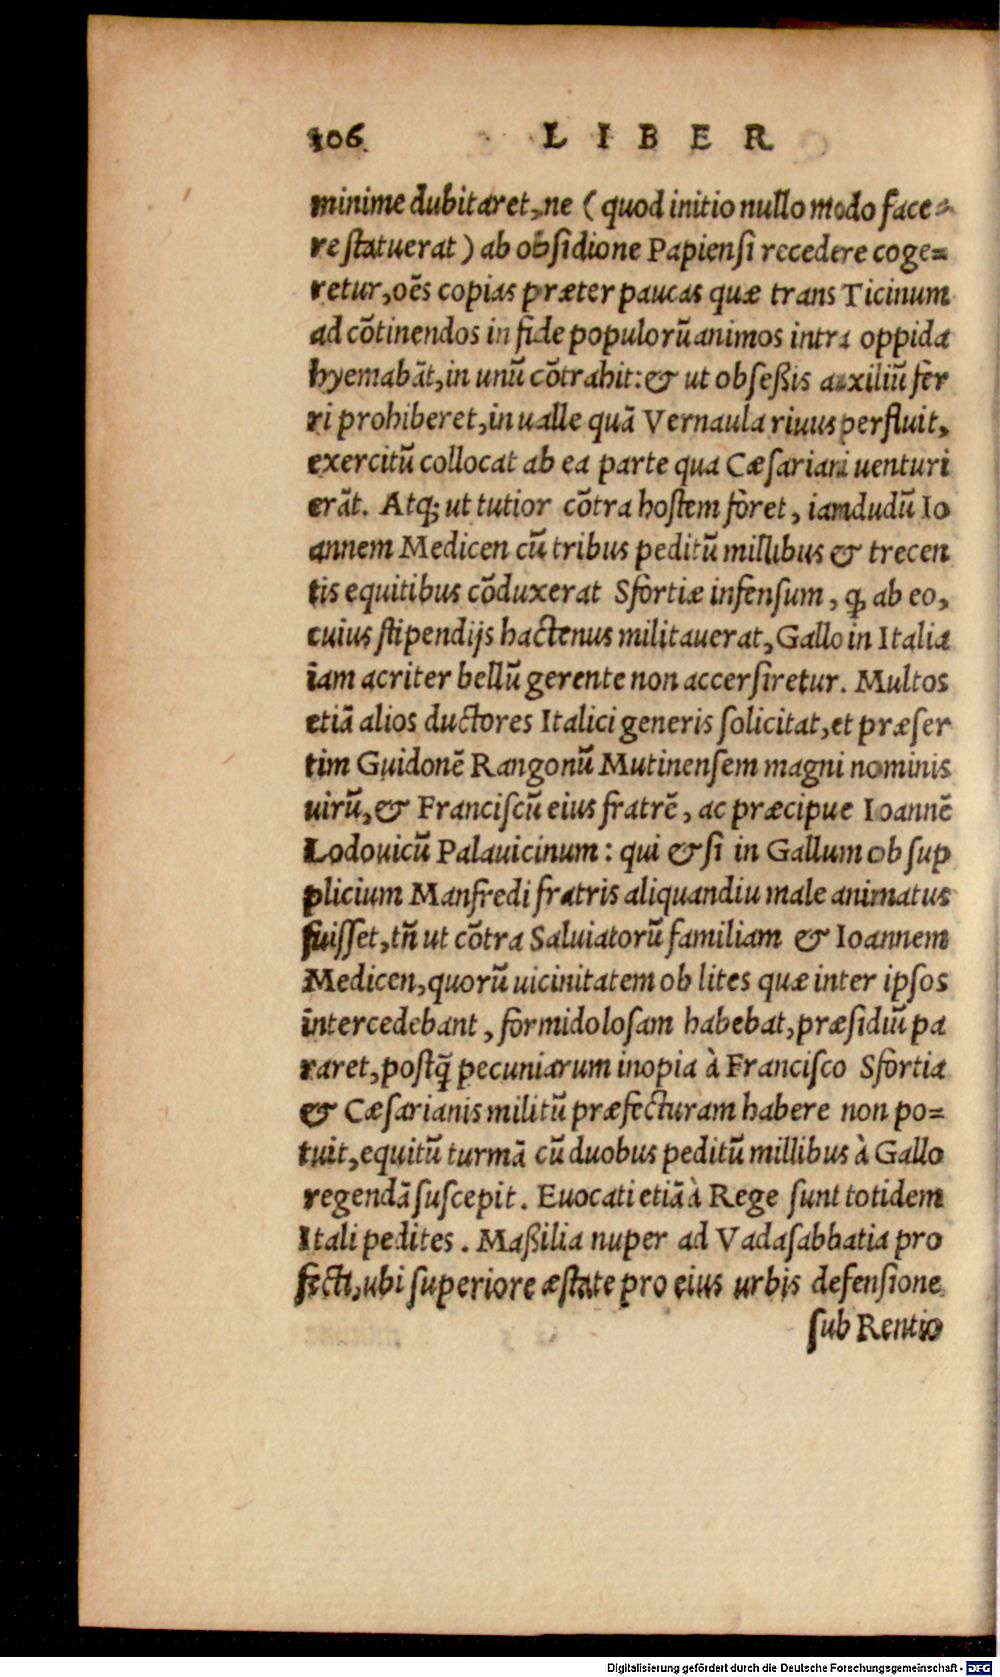 106 LIBER
minime dubitaret, ne (quod initio nullo modo face=
re ſtatuerat) ab obſidione Papienſi recedere coge=
retur, oẽs copias præter paucas quæ trans Ticinum
ad cõtinendos in fide populorũ animos intra oppida
hyemabãt, in unũ cõtrahit: & ut obſeßis auxiliũ fer
ri prohiberet, in ualle quã Vernaula riuus perfluit,
exercitũ collocat ab ea parte qua Cæſariani uenturi
erãt. Atq; ut tutior cõtra hoſtem foret, iamdudũ Io
annem Medicen cũ tribus peditũ millibus & trecen
tis equitibus cõduxerat Sfortiæ infenſum, q; ab eo,
cuius ſtipendijs hactenus militauerat, Gallo in Italia
iam acriter bellũ gerente non accerſiretur. Multos
etiã alios ductores Italici generis ſolicitat, et præſer
tim Guidonẽ Rangonũ Mutinenſem magni nominis
uirũ, & Franciſcũ eius fratrẽ, ac præcipue Ioannẽ
Lodouicũ Palauicinum: qui & ſi in Gallum ob ſup
plicium Manfredi fratris aliquandiu male animatus
fuiſſet, tñ ut cõtra Saluiatorũ familiam & Ioannem
Medicen, quorũ uicinitatem ob lites quæ inter ipſos
intercedebant, formidoloſam habebat, præſidiũ pa
raret, poſtq̃ pecuniarum inopia à Franciſco Sfortia
& Cæſarianis militũ præfecturam habere non po=
tuit, equitũ turmã cũ duobus peditũ millibus à Gallo
regendã ſuſcepit. Euocati etiã à Rege ſunt totidem
Itali pedites. Maßilia nuper ad Vadaſabbatia pro
fecti, ubi ſuperiore æſtate pro eius urbis defenſione
ſub Rentio
Digitalisierung gefördert durch die Deutsche Forschungsgemeinschaft - DFG